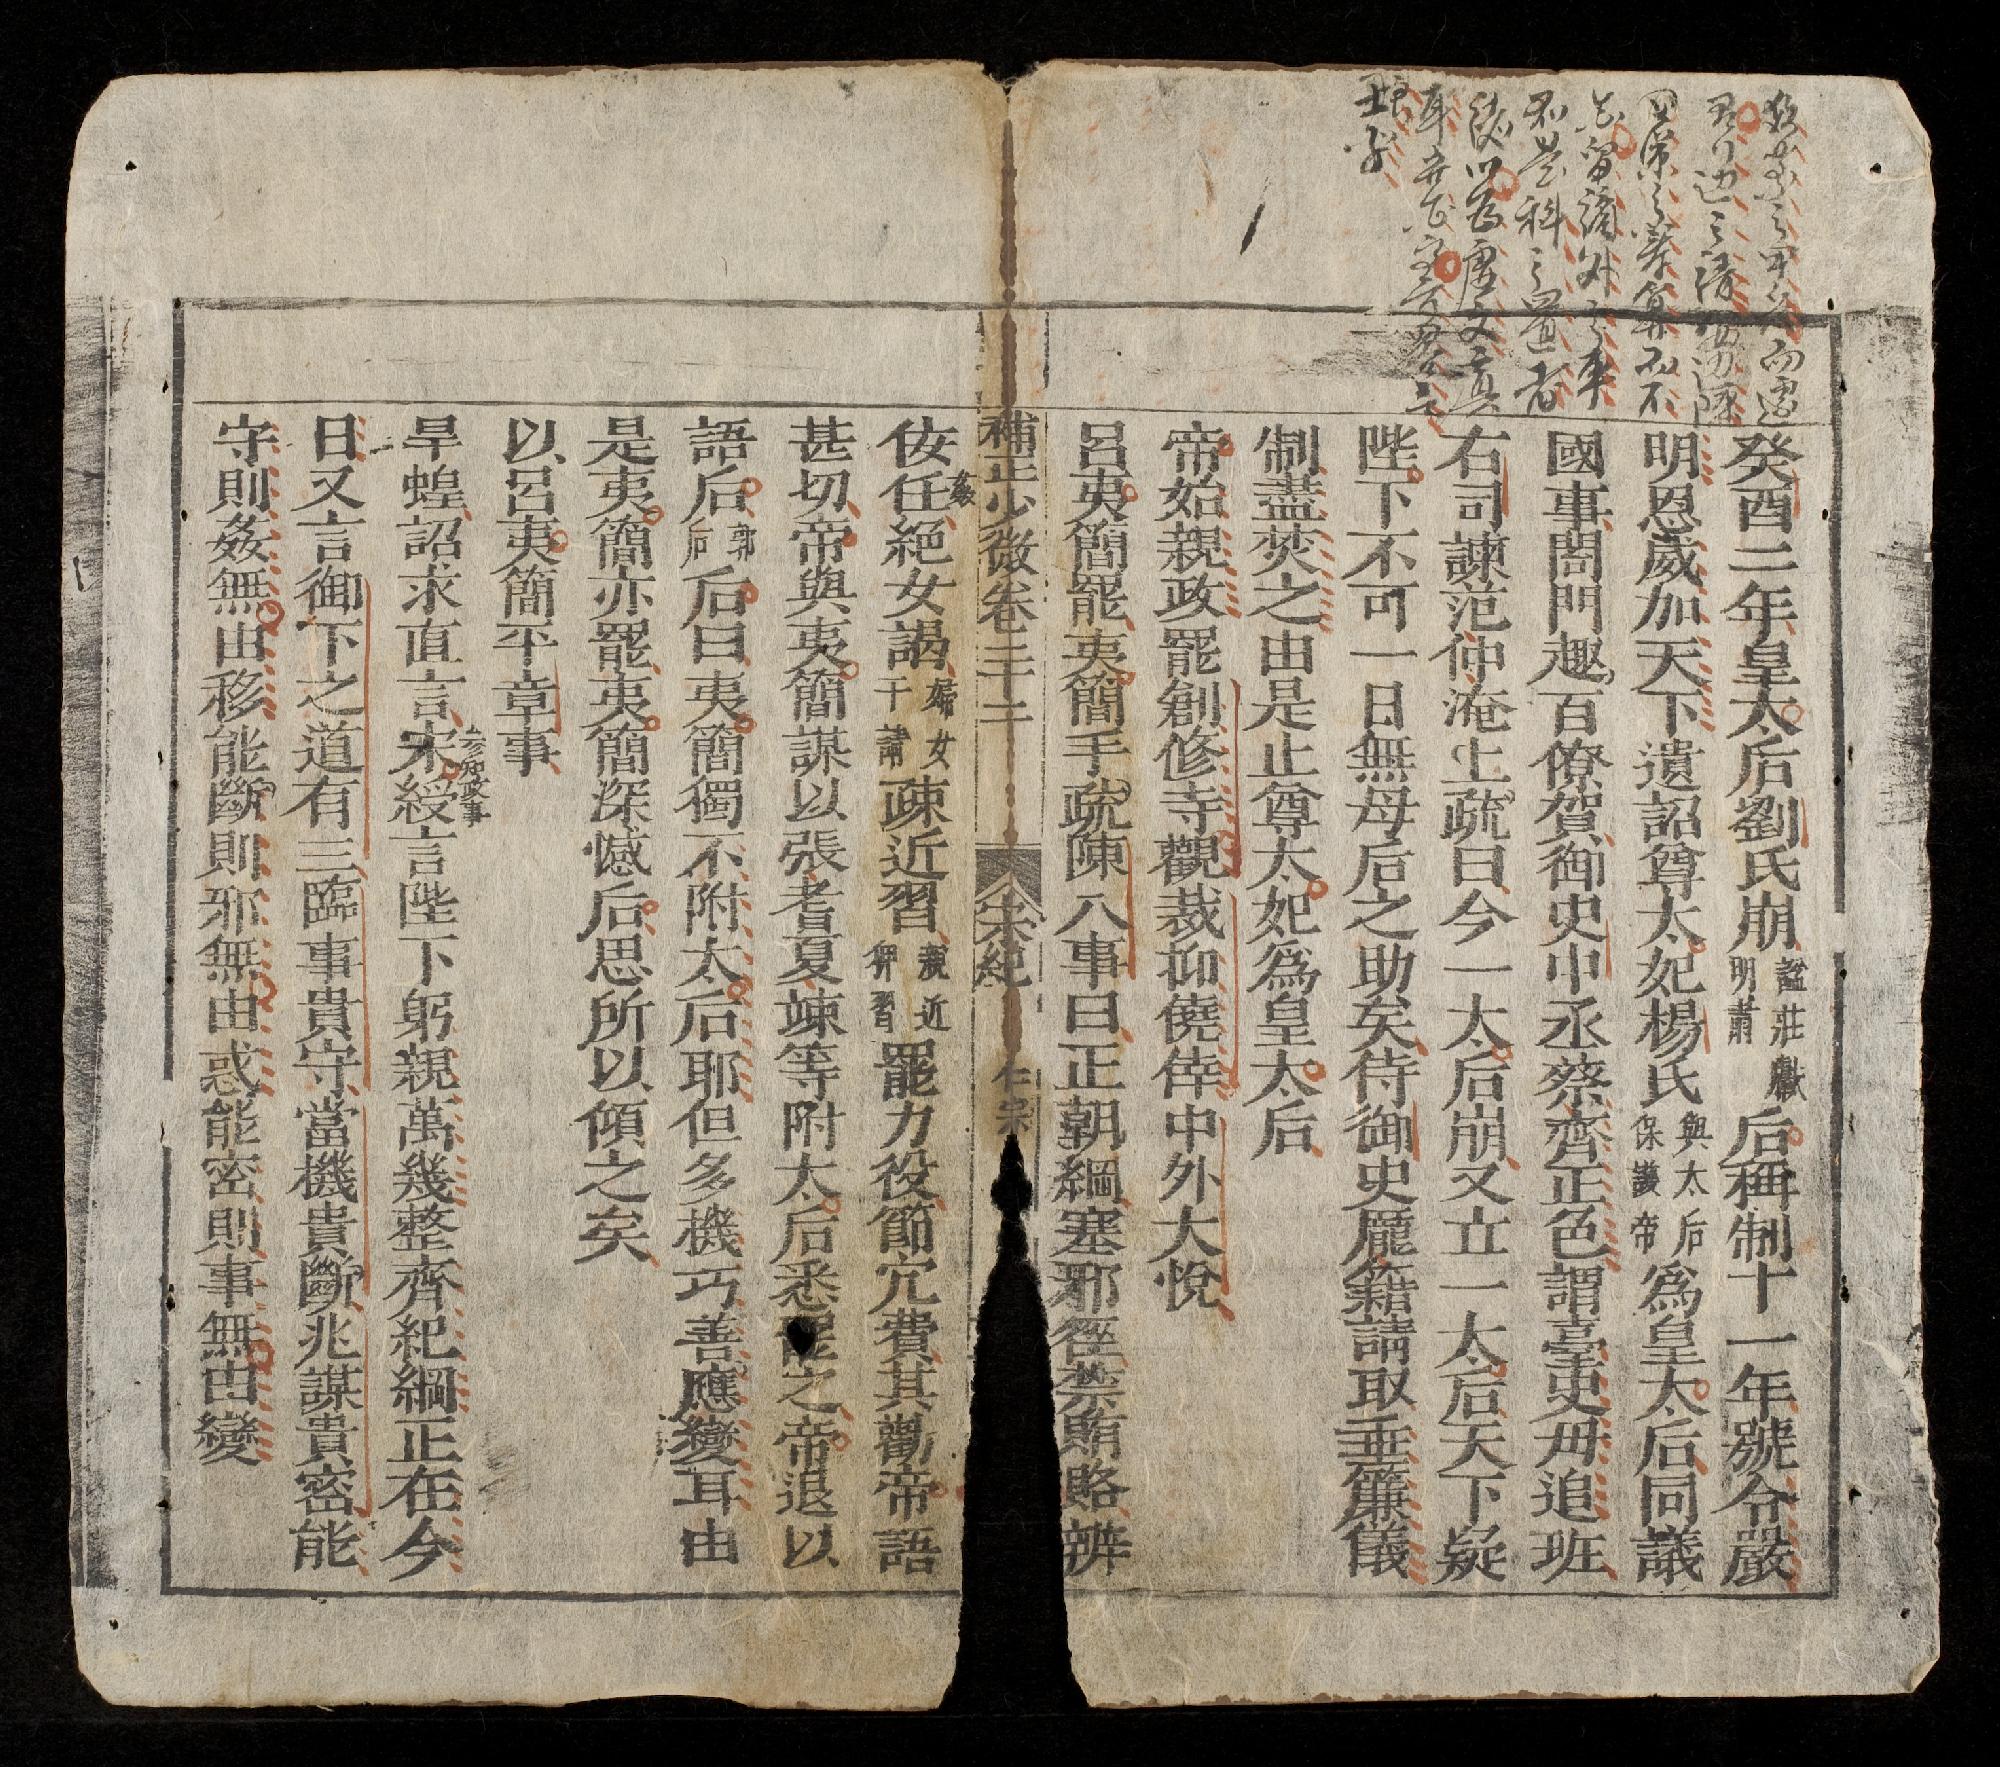 癸酉二年皇太后劉氏崩謚莊獻明肅后稱制十一年號令嚴
明恩威加天下遺詔尊太妃楊氏與太后保護帝爲皇太后同議
國事閤門趣百僚賀御史中丞蔡齊正色謂臺吏毋追班
右司諫范仲淹上疏曰今一太后崩又立一太后天下疑
陛下不可一日無母后之助矣侍御史龐籍請取垂簾儀
制盡焚之由是止尊太妃爲皇太后
帝始親政罷創修寺觀裁抑僥倖中外大悅
呂夷簡罷夷簡手疏陳八事曰正朝綱塞邪徑禁賄賂辨
補正少微卷二十二 宋紀 仁宗
佞任絕女謁婦女干請疎近習親近狎習罷力役節冗費其勸帝語
甚切帝與夷簡謀以張耆夏竦等附太后悉罷之帝退以
語后郭后后曰夷簡獨不附太后耶但多機巧善應變耳由
是夷簡亦罷夷簡深憾后思所以傾之矣
以呂夷簡平章事
旱蝗詔求直言宋綬參知政事言陛下躬親萬幾整齊紀綱正在今
日又言御下之道有三臨事貴守當機貴斷兆謀貴密能
守則姦無由移能斷則邪無由惑能密則事無由變